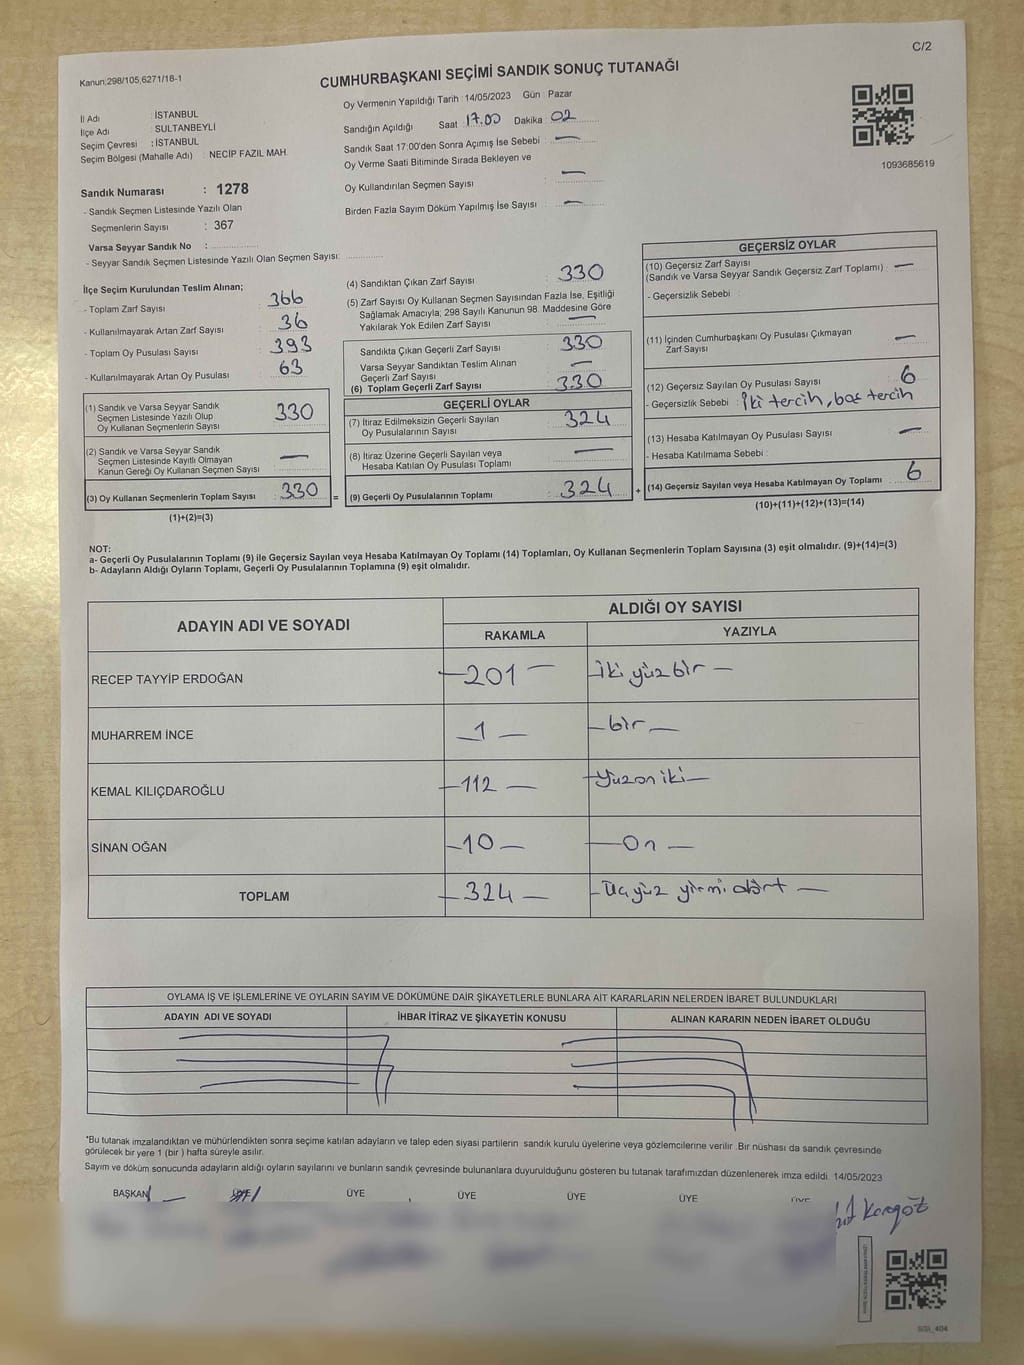 C/2
Kanun:298/105,6271/18-1
CUMHURBAŞKANI SEÇİMİ SANDIK SONUÇ TUTANAĞI
İl Adı İSTANBUL
İlçe Adı SULTANBEYLİ
Seçim Çevresi : İSTANBUL
Seçim Bölgesi (Mahalle Adı) : NECİP FAZIL MAH.
Sandık Numarası : 1278
- Sandık Seçmen Listesinde Yazılı Olan
Seçmenlerin Sayısı : 367
Varsa Seyyar Sandık No :
- Seyyar Sandık Seçmen Listesinde Yazılı Olan Seçmen Sayısı:
Oy Vermenin Yapıldığı Tarih : 14/05/2023 Gün : Pazar
Sandığın Açıldığı Saat 17.00 Dakika : 02
Sandık Saat 17:00'den Sonra Açılmış İse Sebebi : —
Oy Verme Saati Bitiminde Sırada Bekleyen ve
Oy Kullandırılan Seçmen Sayısı : —
Birden Fazla Sayım Döküm Yapılmış İse Sayısı : —
1093685619
İlçe Seçim Kurulundan Teslim Alınan;
- Toplam Zarf Sayısı : 366
- Kullanılmayarak Artan Zarf Sayısı : 36
- Toplam Oy Pusulası Sayısı : 393
- Kullanılmayarak Artan Oy Pusulası : 63
(1) Sandık ve Varsa Seyyar Sandık
Seçmen Listesinde Yazılı Olup
Oy Kullanan Seçmenlerin Sayısı : 330
(2) Sandık ve Varsa Seyyar Sandık
Seçmen Listesinde Kayıtlı Olmayan
Kanun Gereği Oy Kullanan Seçmen Sayısı : —
(3) Oy Kullanan Seçmenlerin Toplam Sayısı : 330 =
(1)+(2)=(3)
(4) Sandıktan Çıkan Zarf Sayısı : 330
(5) Zarf Sayısı Oy Kullanan Seçmen Sayısından Fazla İse, Eşitliği
Sağlamak Amacıyla; 298 Sayılı Kanunun 98. Maddesine Göre
Yakılarak Yok Edilen Zarf Sayısı : —
Sandıkta Çıkan Geçerli Zarf Sayısı : 330
Varsa Seyyar Sandıktan Teslim Alınan
Geçerli Zarf Sayısı : —
(6) Toplam Geçerli Zarf Sayısı : 330
GEÇERLİ OYLAR
(7) İtiraz Edilmeksizin Geçerli Sayılan
Oy Pusulalarının Sayısı : 324
(8) İtiraz Üzerine Geçerli Sayılan veya
Hesaba Katılan Oy Pusulası Toplamı : —
(9) Geçerli Oy Pusulalarının Toplamı : 324 +
GEÇERSİZ OYLAR
(10) Geçersiz Zarf Sayısı
(Sandık ve Varsa Seyyar Sandık Geçersiz Zarf Toplamı) : —
- Geçersizlik Sebebi :
(11) İçinden Cumhurbaşkanı Oy Pusulası Çıkmayan
Zarf Sayısı : —
(12) Geçersiz Sayılan Oy Pusulası Sayısı : 6
- Geçersizlik Sebebi : İki tercih, boş tercih
(13) Hesaba Katılmayan Oy Pusulası Sayısı : —
- Hesaba Katılmama Sebebi :
(14) Geçersiz Sayılan veya Hesaba Katılmayan Oy Toplamı : 6
(10)+(11)+(12)+(13)=(14)
NOT:
a- Geçerli Oy Pusulalarının Toplamı (9) ile Geçersiz Sayılan veya Hesaba Katılmayan Oy Toplamı (14) Toplamları, Oy Kullanan Seçmenlerin Toplam Sayısına (3) eşit olmalıdır. (9)+(14)=(3)
b- Adayların Aldığı Oyların Toplamı, Geçerli Oy Pusulalarının Toplamına (9) eşit olmalıdır.
ADAYIN ADI VE SOYADI
ALDIĞI OY SAYISI
RAKAMLA YAZIYLA
RECEP TAYYİP ERDOĞAN —201— —iki yüz bir—
MUHARREM İNCE —1— —bir—
KEMAL KILIÇDAROĞLU —112— —Yüzon iki—
SİNAN OĞAN —10— —On—
TOPLAM —324— —Üç yüz yirmi dört—
OYLAMA İŞ VE İŞLEMLERİNE VE OYLARIN SAYIM VE DÖKÜMÜNE DAİR ŞİKAYETLERLE BUNLARA AİT KARARLARIN NELERDEN İBARET BULUNDUKLARI
ADAYIN ADI VE SOYADI İHBAR İTİRAZ VE ŞİKAYETİN KONUSU ALINAN KARARIN NEDEN İBARET OLDUĞU
*Bu tutanak imzalandıktan ve mühürlendikten sonra seçime katılan adayların ve talep eden siyasi partilerin sandık kurulu üyelerine veya gözlemcilerine verilir. Bir nüshası da sandık çevresinde
görülecek bir yere 1 (bir) hafta süreyle asılır.
Sayım ve döküm sonucunda adayların aldığı oyların sayılarını ve bunların sandık çevresinde bulunanlara duyurulduğunu gösteren bu tutanak tarafımızdan düzenlenerek imza edildi. 14/05/2023
BAŞKAN ÜYE ÜYE ÜYE ÜYE ÜYE ÜYE